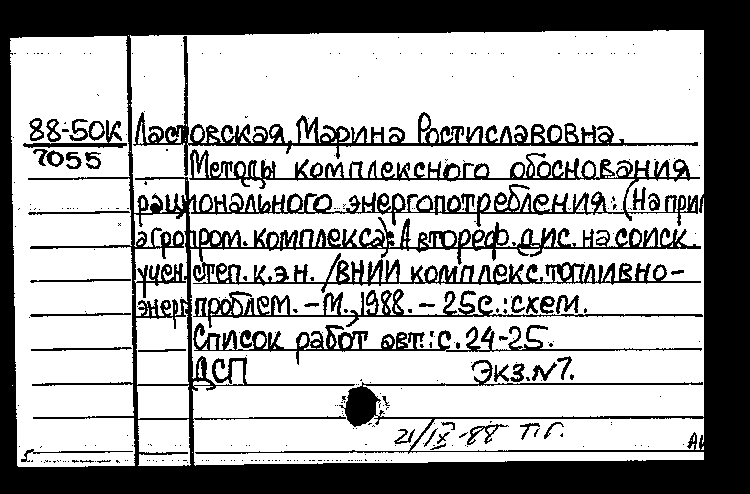 88-50К Ластовская, Марина Ростиславовна.
7055 Методы комплексного обоснования
рационального энергопотребления: (На прим
агропром. комплекса): Автореф. дис. на соиск.
учен. степ. к.э.н. /ВНИИ комплекс. топливно-
энерг. проблем. – М., 1988. – 25с.: схем.
Список работ авт.: с. 24-25.
ДСП Экз.N7.
21/IX-88 П.Г.